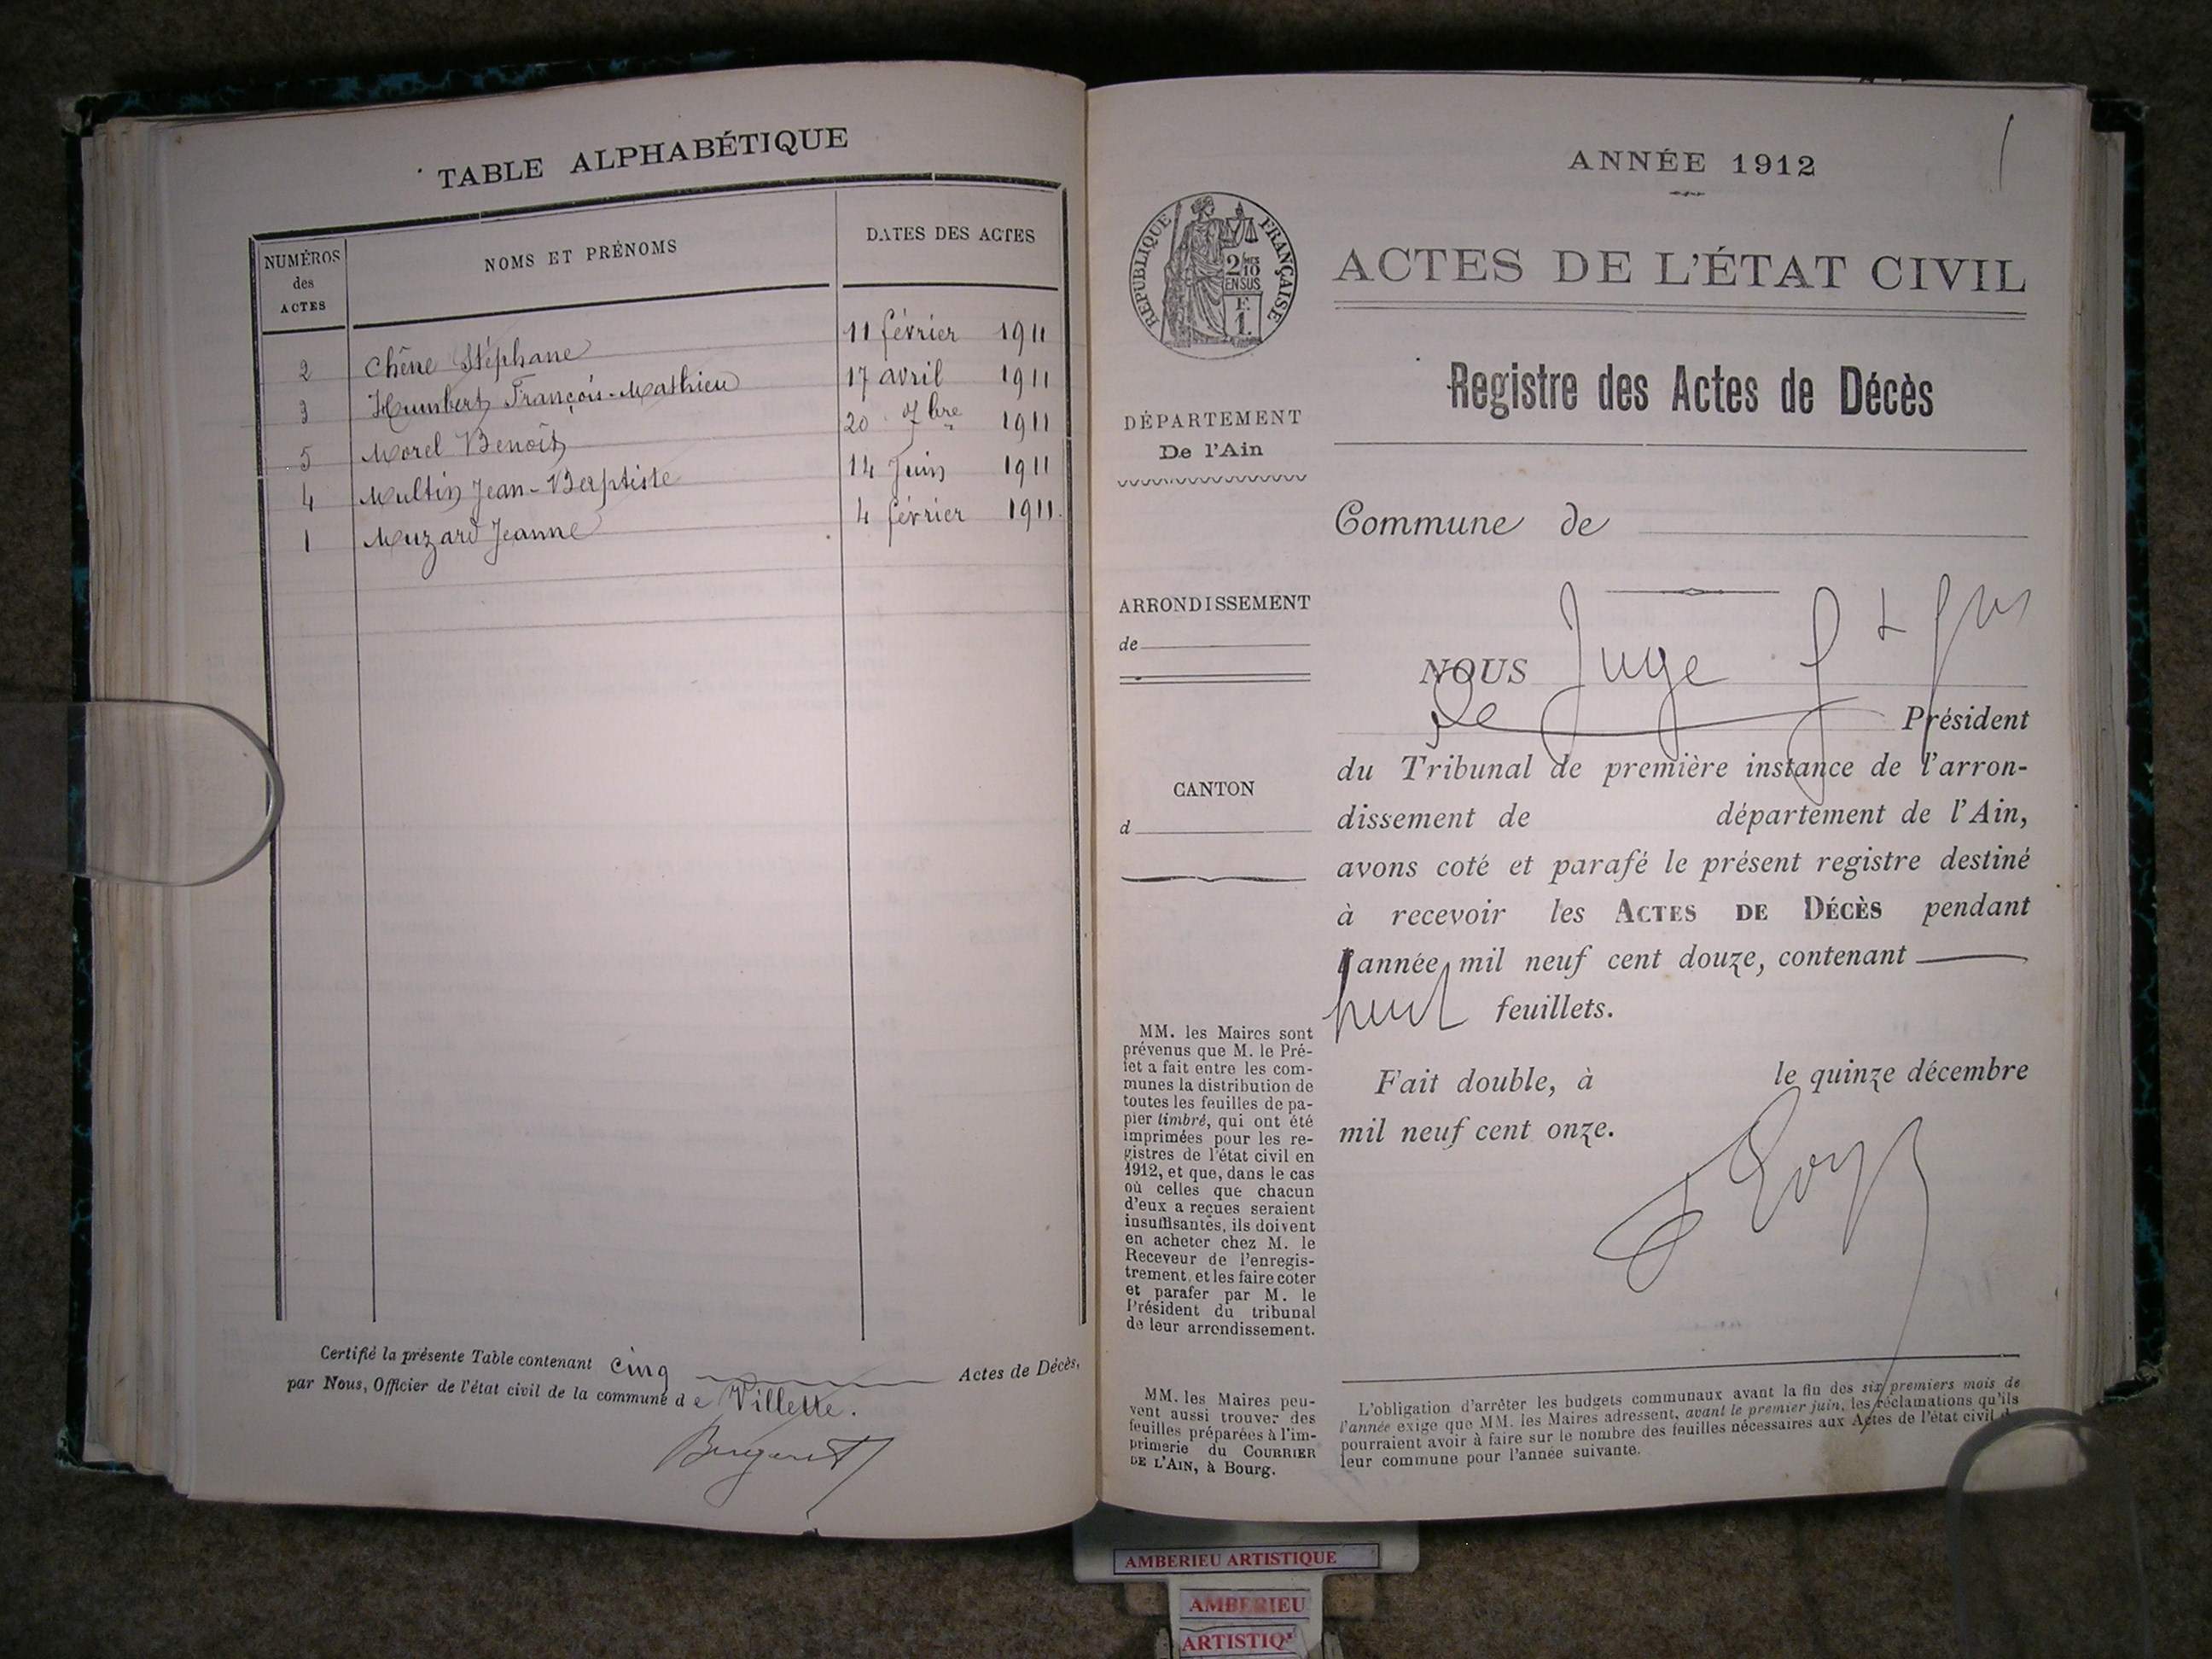 TABLE ALPHABÉTIQUE
NUMÉROS des ACTES
NOMS ET PRÉNOMS
DATES DES ACTES
2 Chêne Stéphane 11 février 1911
3 Humbert François-Mathieu 17 avril 1911
5 Morel Benoît 20 7bre 1911
4 Multin Jean-Baptiste 14 Juin 1911
1 Muzard Jeanne 4 février 1911.
Certifié la présente Table contenant cinq Actes de Décès,
par Nous, Officier de l'état civil de la commune de Villette.
1
ANNÉE 1912
RÉPUBLIQUE FRANÇAISE
2/10
EN SUS
F.
1.
ACTES DE L'ÉTAT CIVIL
Registre des Actes de Décès
DÉPARTEMENT
De l'Ain
Commune de
ARRONDISSEMENT
de
CANTON
d
NOUS Juge
Président
du Tribunal de première instance de l'arron-
dissement de département de l'Ain,
avons coté et parafé le présent registre destiné
à recevoir les ACTES DE DÉCÈS pendant
l'année mil neuf cent douze, contenant
huit feuillets.
Fait double, à le quinze décembre
mil neuf cent onze.
MM. les Maires sont
prévenus que M. le Pré-
fet a fait entre les com-
munes la distribution de
toutes les feuilles de pa-
pier timbré, qui ont été
imprimées pour les re-
gistres de l'état civil en
1912, et que, dans le cas
où celles que chacun
d'eux a reçues seraient
insuffisantes, ils doivent
en acheter chez M. le
Receveur de l'enregis-
trement, et les faire coter
et parafer par M. le
Président du tribunal
de leur arrondissement.
MM. les Maires peu-
vent aussi trouver des
feuilles préparées à l'im-
primerie du COURRIER
DE L'AIN, à Bourg.
L'obligation d'arrêter les budgets communaux avant la fin des six premiers mois de
l'année exige que MM. les Maires adressent, avant le premier juin, les réclamations qu'ils
pourraient avoir à faire sur le nombre des feuilles nécessaires aux Actes de l'état civil de
leur commune pour l'année suivante.
AMBERIEU ARTISTIQUE
AMBERIEU
ARTISTIQU